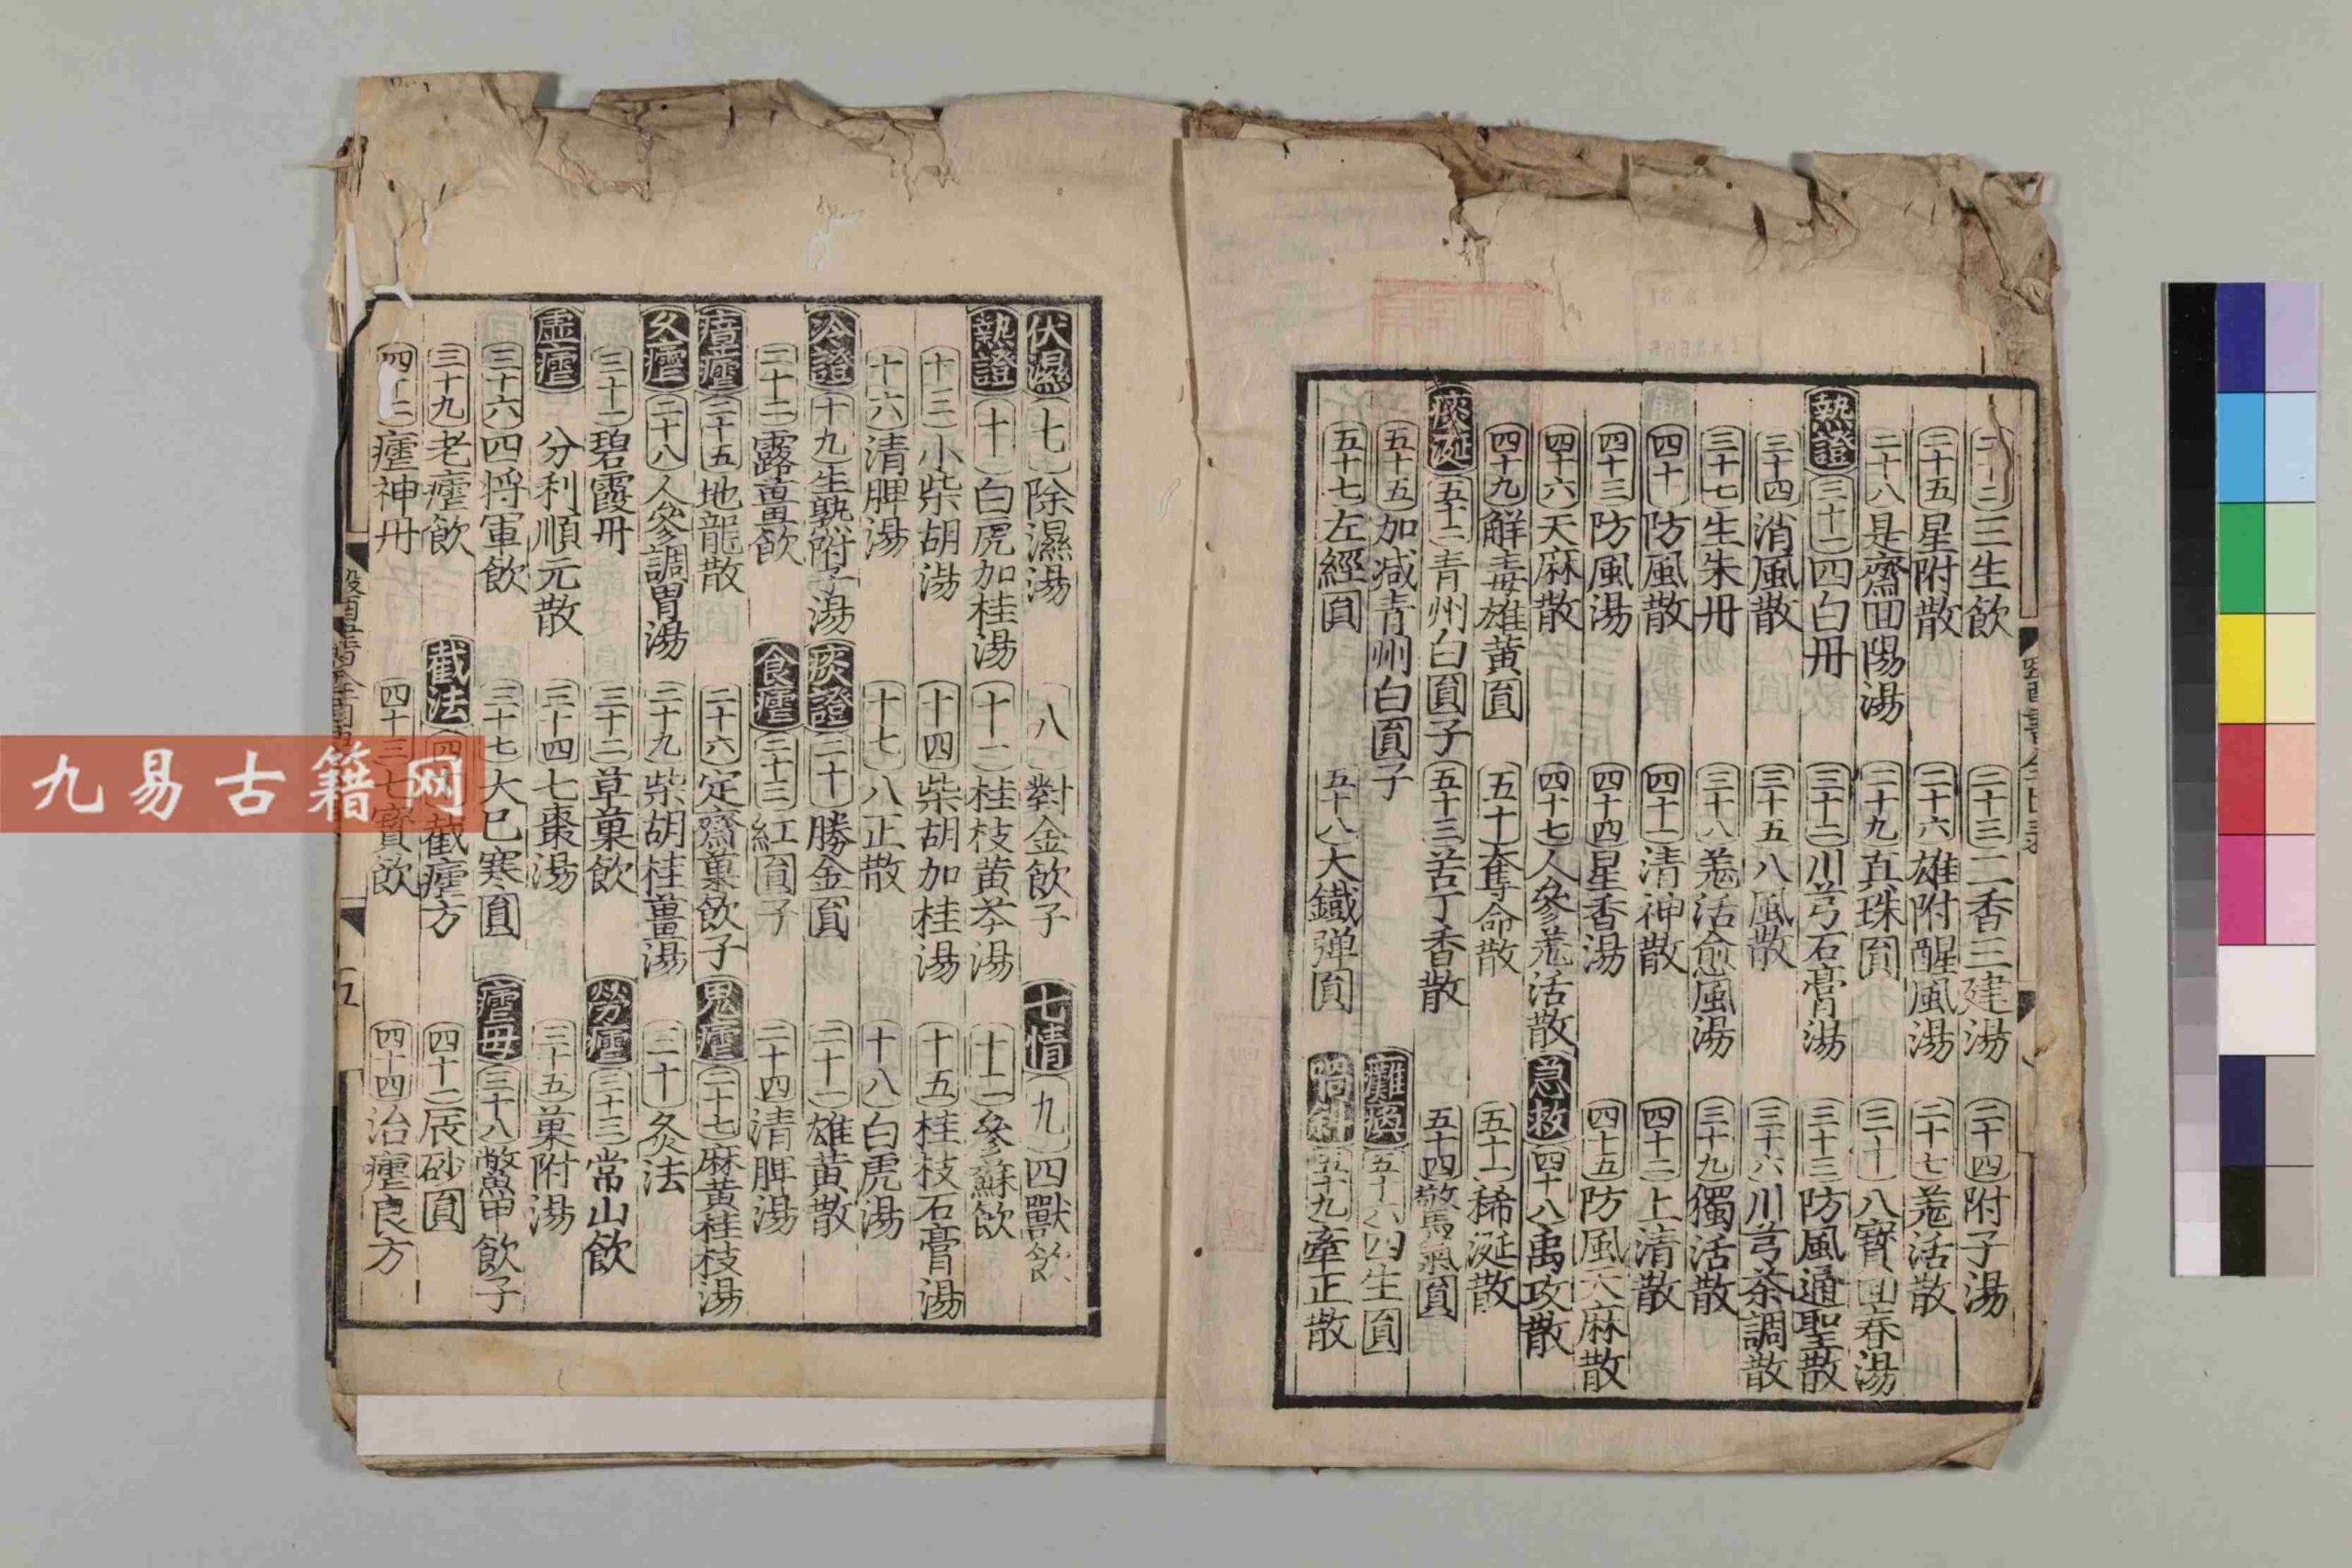 二十二三生飲 二十三二香三建湯 二十四附子湯
二十五星附散 二十六雄附醒風湯 二十七羗活散
二十八是齋回陽湯 二十九真珠圓 三十八寶回春湯
熱證 三十一四白丹 三十二川芎石膏湯 三十三防風通聖散
三十四消風散 三十五八風散 三十六川芎茶調散
三十七生朱丹 三十八羗活愈風湯 三十九獨活散
四十防風散 四十一清神散 四十二上清散
四十三防風湯 四十四星香湯 四十五防風天麻散
四十六天麻散 四十七人參羗活散 急救 四十八禹攻散
四十九解毒雄黃圓 五十奪命散 五十一稀涎散
痰涎 五十二青州白圓子 五十三苦丁香散 五十四驚氣圓
五十五加减青州白圓子 癱瘓 五十六四生圓
五十七左經圓 五十八大鐵弹圓 喎斜 五十九牽正散
伏濕 七除濕湯 八對金飲子 七情 九四獸飲
熱證 十白虎加桂湯 十一桂枝黃芩湯 十二參蘇飲
十三小柴胡湯 十四柴胡加桂湯 十五桂枝石膏湯
十六清脾湯 十七八正散 十八白虎湯
冷證 十九生熟附子湯 痰證 二十勝金圓 二十一雄黃散
二十二露薑飲 食瘧 二十三紅圓子 二十四清脾湯
瘴瘧 二十五地龍散 二十六定齋菓飲子 鬼瘧 二十七麻黃桂枝湯
久瘧 二十八人參調胃湯 二十九柴胡桂薑湯 三十灸法
三十一碧霞丹 三十二草菓飲 勞瘧 三十三常山飲
虛瘧 分利順元散 三十四七棗湯 三十五菓附湯
三十六四將軍飲 三十七大已寒圓 瘧母 三十八鱉甲飲子
三十九老瘧飲 截法 截瘧方 四十一辰砂圓
四十二瘧神丹 四十三七寶飲 四十四治瘧良方
九易古籍网